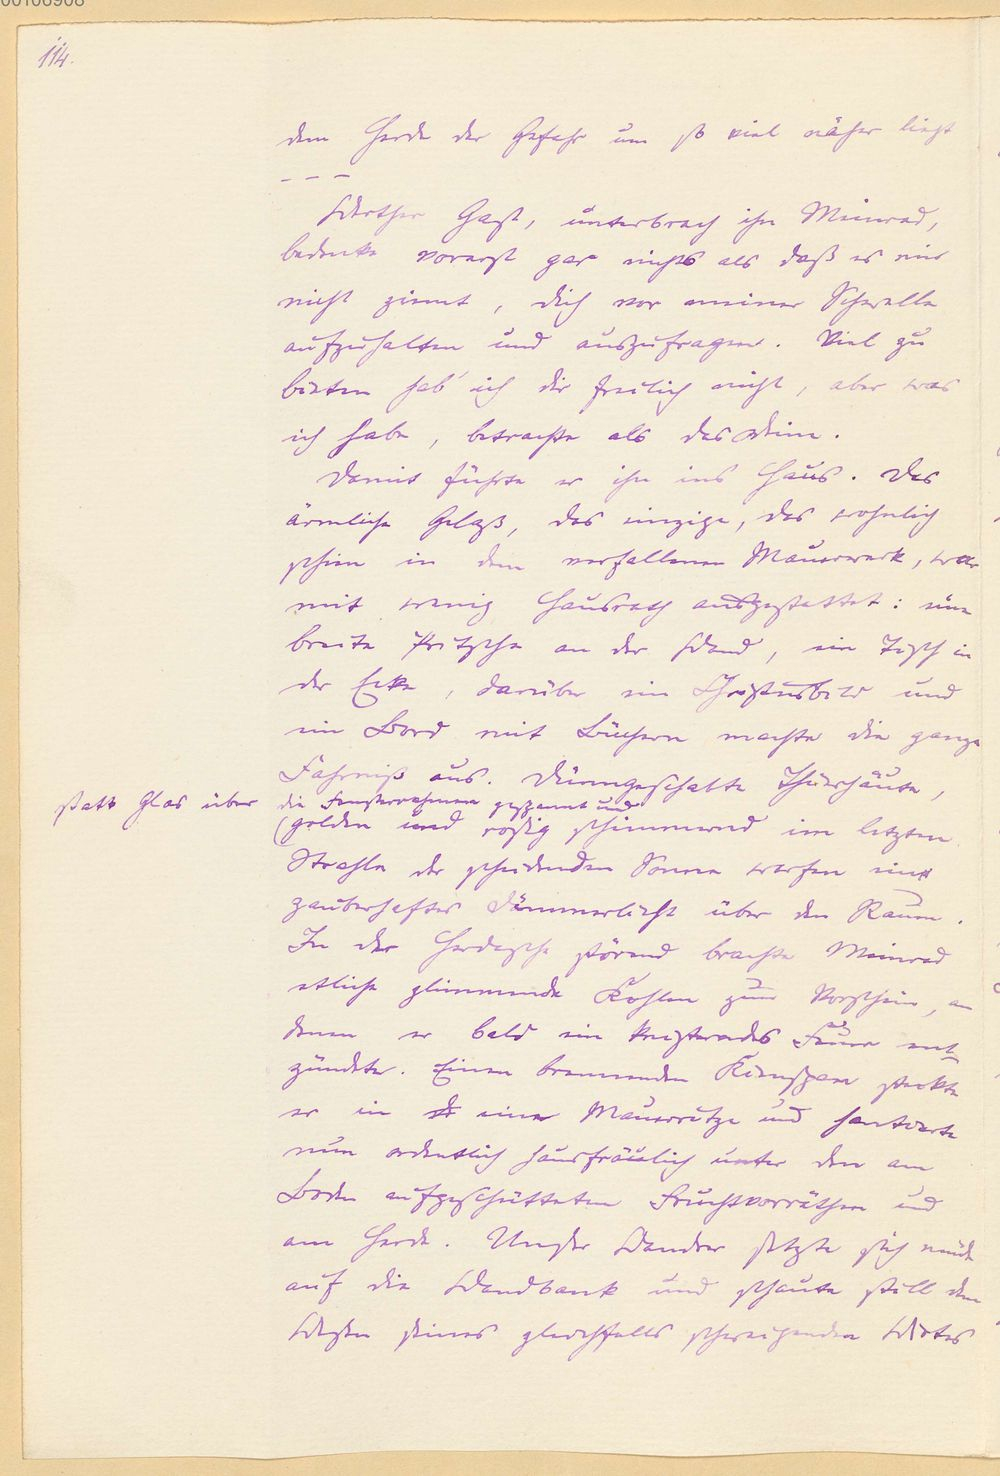 00106908
114.
dem Herde der Gefahr um so viel näher liegt
– – –
Werther Gast, unterbrach ihn Meinrad,
bedenke vorerst gar nichts als daß es mir
nicht ziemt, dich vor meiner Schwelle
aufzuhalten und auszufragen. Viel zu
bieten hab' ich dir freilich nicht, aber was
ich habe, betrachte als das Deine.
Damit führte er ihn ins Haus. Das
ärmliche Gelaß, das einzige, das wohnlich
schien in dem verfallenen Mauerwerk, war
mit wenig Hausrath ausgestattet: eine
breite Pritsche an der Wand, ein Tisch in
der Ecke, darüber ein Christusbild und
ein Bord mit Büchern machte die ganze
Fahrniß aus. Dünngeschabte Thierhäute,
statt Glas über die Fensterrahmen gespannt und
(golden und rosig schimmernd im letzten
Strahle der scheidenden Sonne warfen ein
zauberhaftes Dämmerlicht über den Raum.
In der Herdasche störend brachte Meinrad
etliche glimmende Kohlen zum Vorschein, an
denen er bald ein knisterndes Feuer ent-
zündete. Einen brennenden Kienspan steckte
er in eine Mauerritze und hantierte
nun ordentlich hausfräulich unter den am
Boden aufgeschütteten Fruchtvorräthen und
am Herde. Unser Wandrer setzte sich müde
auf die Wandbank und schaute still dem
Wesen seines gleichfalls schweigenden Wirtes